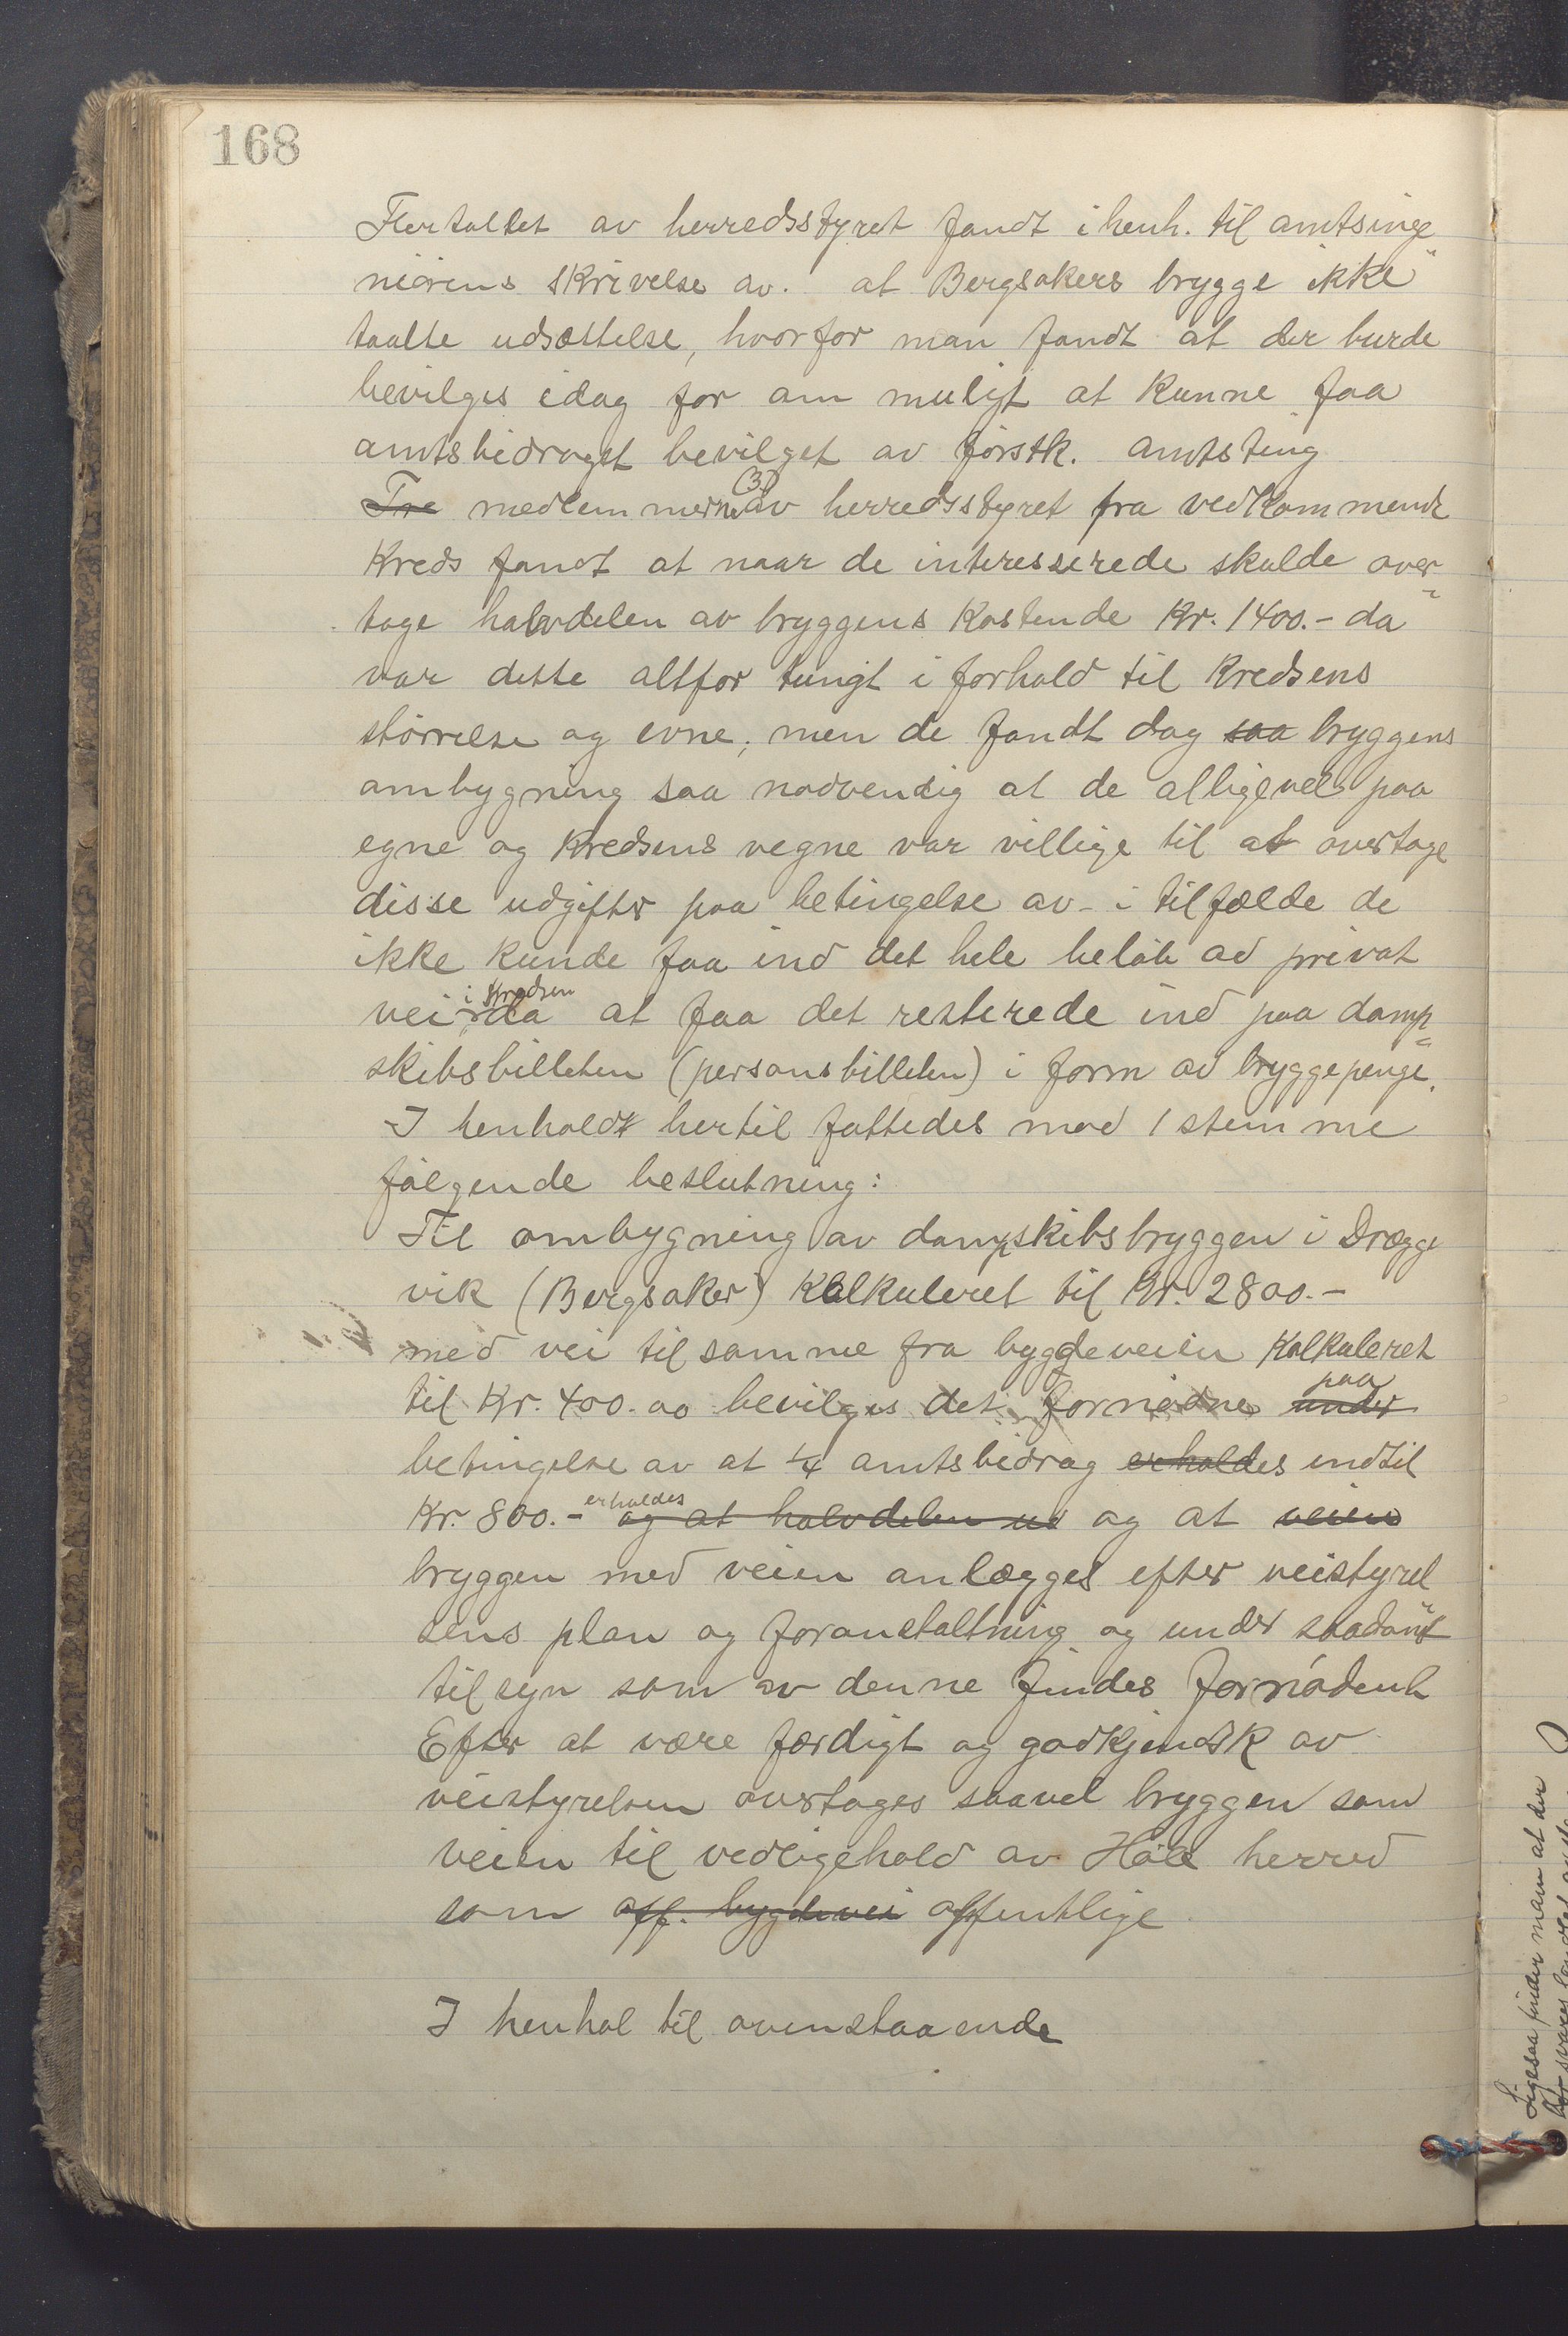 168
Flertallet av herredsstyret fandt i henh. til amtsinge
niørens skrivelse av. at Bergsakers brygge ikke
taalte udsættelse, hvorfor man fandt at der burde
bevilges idag for om muligt at kunne faa
amtsbidraget bevilget av førstk. amtsting
Tre medlemmerne (3) av herredsstyret fra vedkommende
Kreds fandt at naar de interesserede skulde over-
tage halvdelen av bryggens Kostende Kr. 1400.- da
var dette altfor tungt i forhold til Kredsens
størrelse og evne; men de fandt dog saa bryggens
ombygning saa nødvendig at de alligevel paa
egne og Kredsens vegne var villige til at overtage
disse udgifter paa betingelse av - i tilfælde de
ikke kunde faa ind det hele beløb ad privat
vei i Kredsen da at faa det resterede ind paa damp-
skibsbilleten (personsbilleten) i form ad bryggepenge.
I henholdt hertil fattedes mod 1 stemme
følgende beslutning:
Til ombygning av dampskibsbryggen i Drægge
vik (Bergsaker) Kalkuleret til Kr. 2800.-
med vei til samme fra bygdeveien Kalkuleret
til Kr. 400.00 bevilges det fornødne under paa
betingelse av at 1/4 amtsbidrag erholdes indtil
Kr. 800.- erholdes og at halvdelen ud og at veien
bryggen med veien anlægges efter veistyrel
sens plan og foranstaltning og under saadant
tilsyn som av denne findes fornødent
Efter at være færdigt og godkjendt av
veistyrelsen overtages saavel bryggen som
veien til vedligehold av Høle herred
som off. bygdevei offentlige
I henhol til ovenstaaende
Ligesaa finder man at der